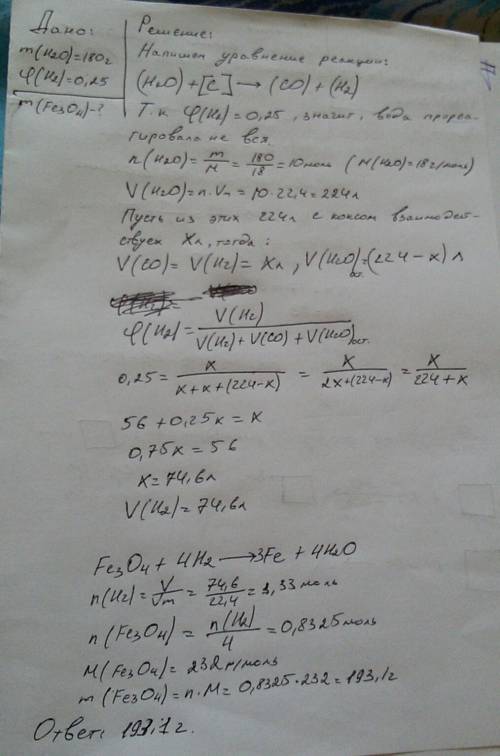 Дано:
m(H2O)=180г
φ(H2)=0,25
m(Fe3O4)-?
Решение:
Напишем уравнение реакции:
(H2O)+[C] → (CO)+(H2)
Т.к φ(H2)=0,25, значит, вода прореа-
гировала не вся.
n(H2O)=m/M=180/18=10моль (M(H2O)=18г/моль)
V(H2O)=n·Vm=10·22,4=224л
Пусть из этих 224л с коксом взаимодей-
ствует Xл, тогда:
V(CO)=V(H2)=Xл, V(H2O)ост.=(224-x)л
φ(H2)=V(H2)/(V(H2)+V(CO)+V(H2O)ост.)
0,25=x/(x+x+(224-x))=x/(2x+(224-x))=x/(224+x)
56+0,25x=x
0,75x=56
x=74,6л
V(H2)=74,6л
Fe3O4+4H2→3Fe+4H2O
n(H2)=V/Vm=74,6/22,4=3,33моль
n(Fe3O4)=n(H2)/4=0,8325моль
M(Fe3O4)=232г/моль
m(Fe3O4)=n·M=0,8325·232=193,1г
Ответ: 193,1г.